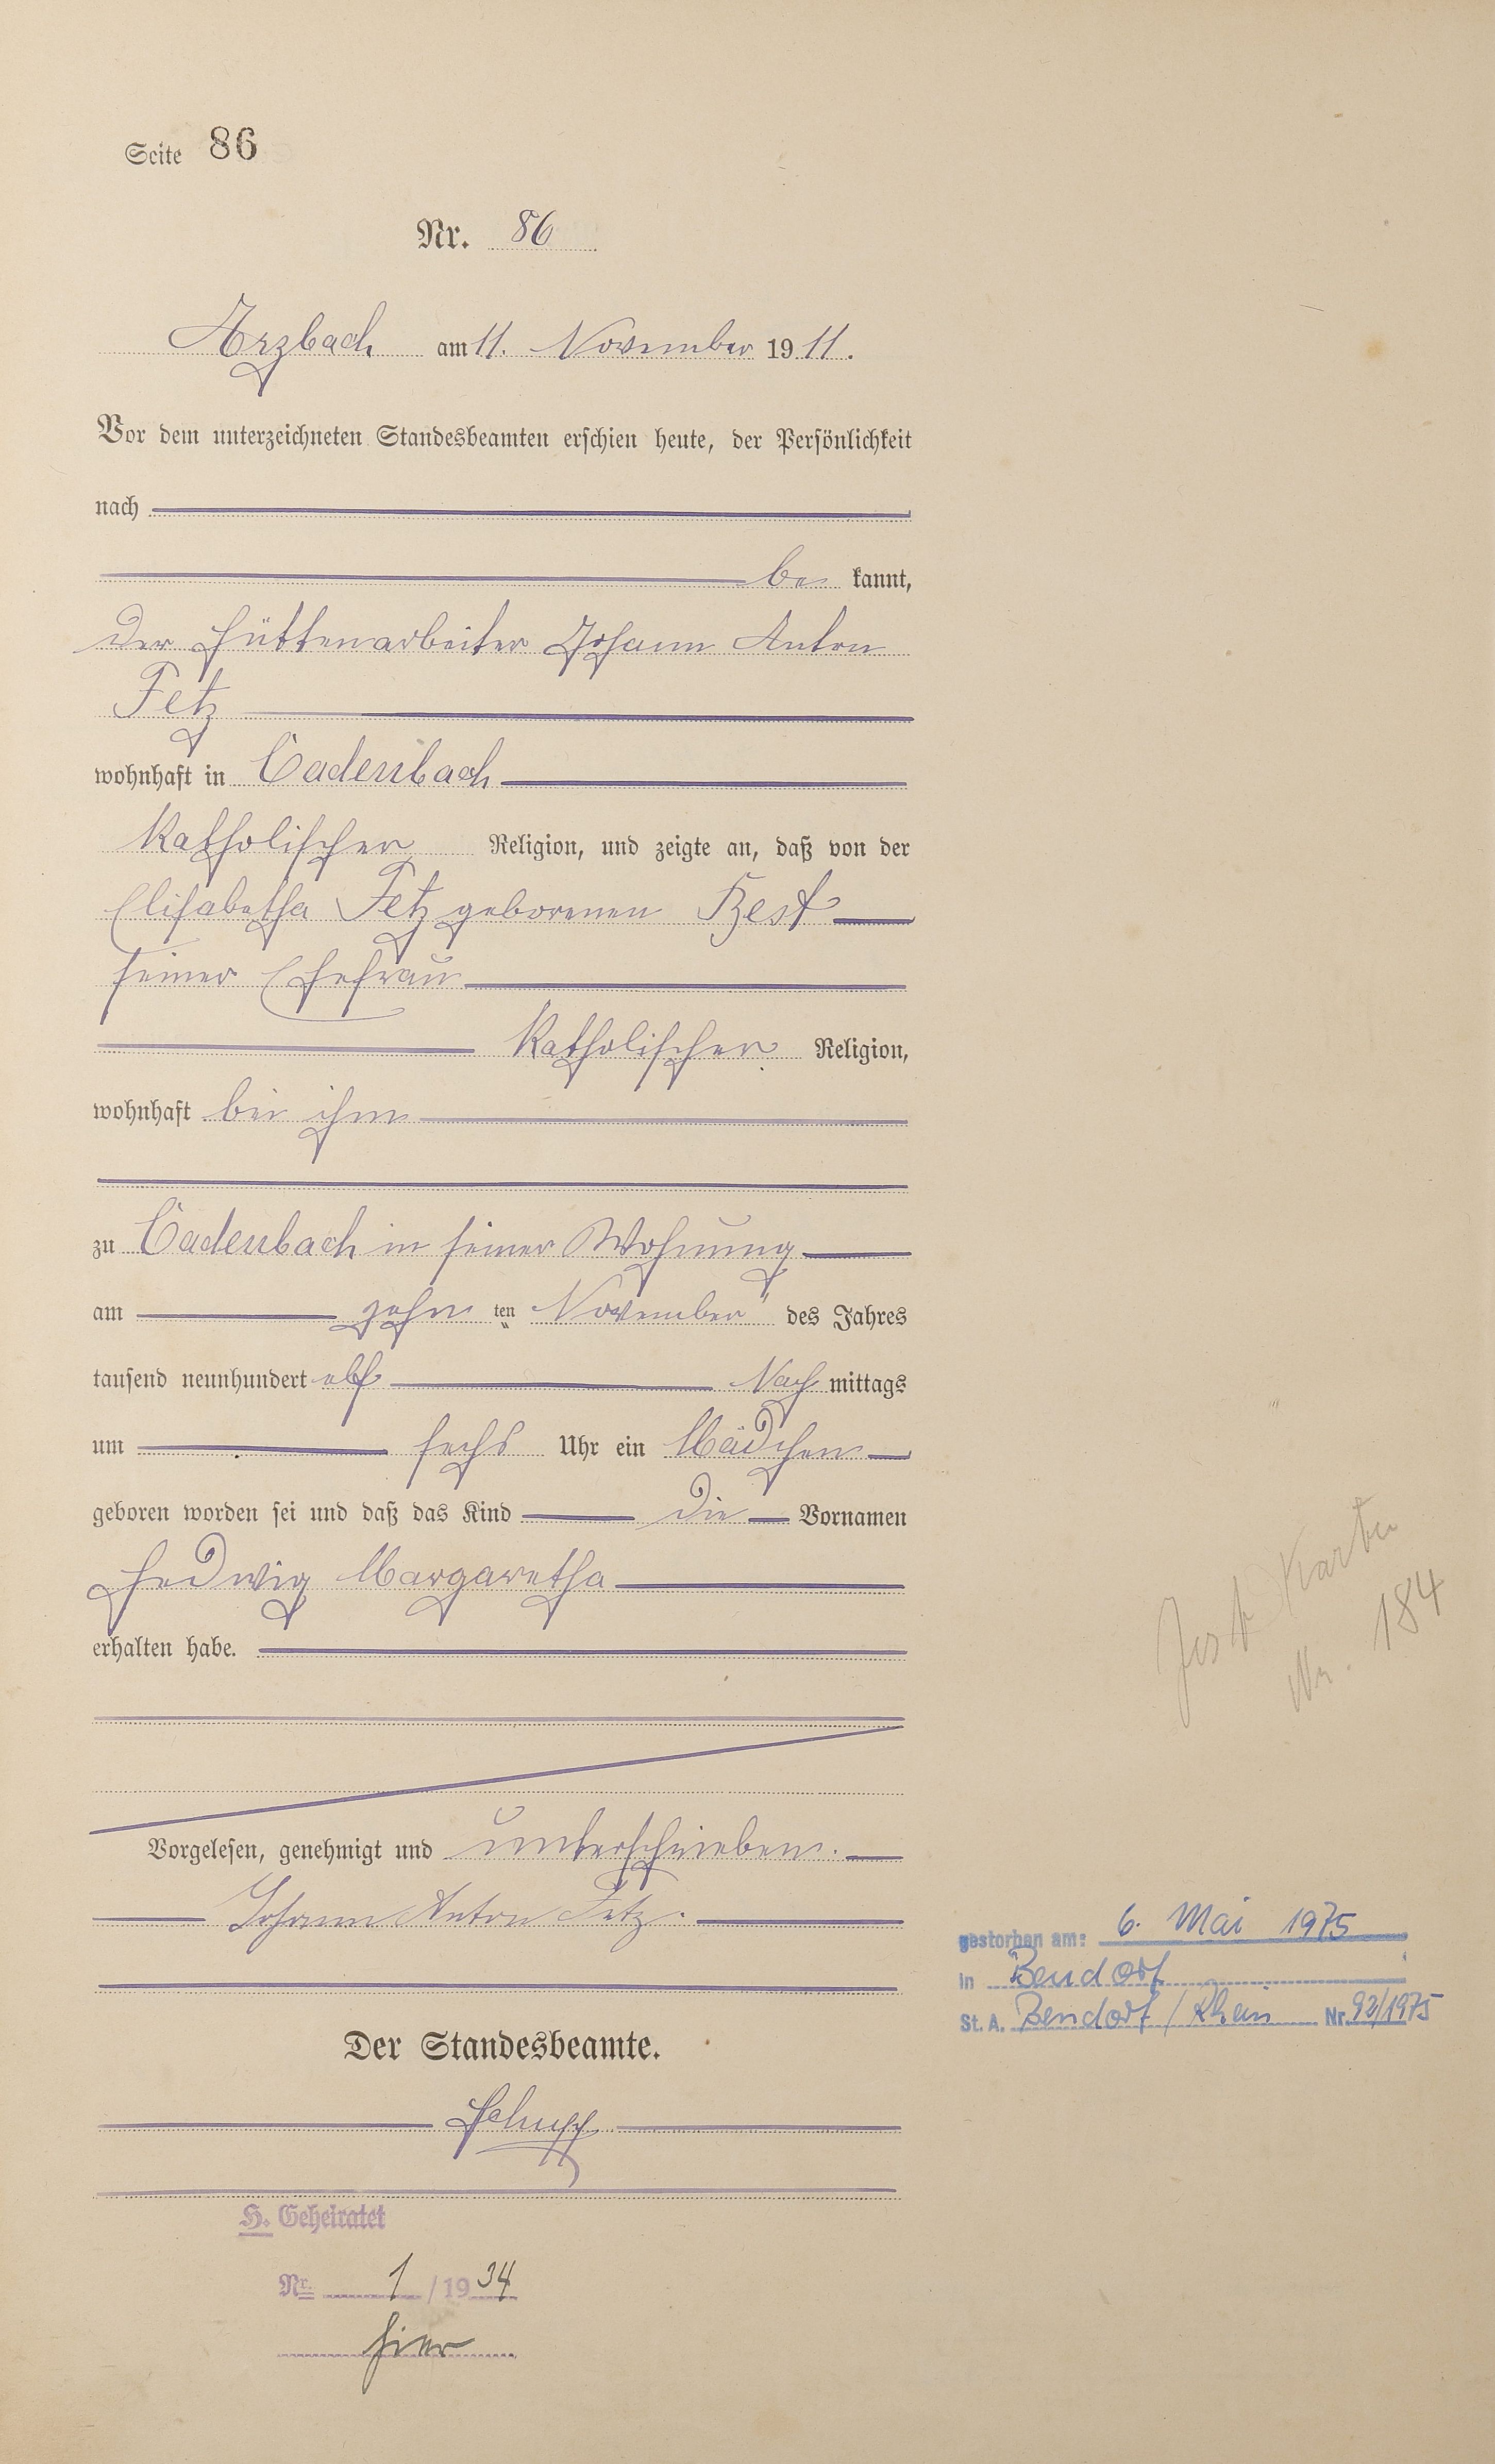 Seite 86
Nr. 86
Arzbach am 11. November 1911.
Vor dem unterzeichneten Standesbeamten erschien heute, der Persönlichkeit
nach
be kannt,
der Hüttenarbeiter Johann Anton
Fetz
wohnhaft in Cadenbach
Katholischer Religion, und zeigte an, daß von der
Elisabetha Fetz geborenen
seiner Ehefrau
Katholischer Religion,
wohnhaft bei ihm
zu Cadenbach in seiner Wohnung
am zehn ten November des Jahres
tausend neunhundert elf Nach mittags
um sechs Uhr ein Mädchen
geboren worden sei und daß das Kind die Vornamen
Hedwig Margaretha
erhalten habe.
Vorgelesen, genehmigt und unterschrieben.
Johann Anton Fetz.
Der Standesbeamte.
H. Geheiratet
Nr. 1/1934
hier
Karte
Nr. 184
gestorben am: 6. Mai 1975
in Bendorf
St. A. Bendorf / Rhein Nr. 92/1975